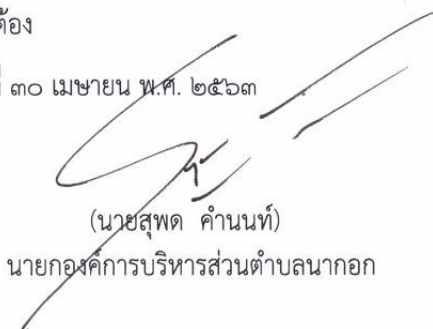 ต้อง
๓๐ เมษายน พ.ศ. ๒๕๖๓
(นายสุพด คำนนท์)
นายกองค์การบริหารส่วนตำบลนากอก